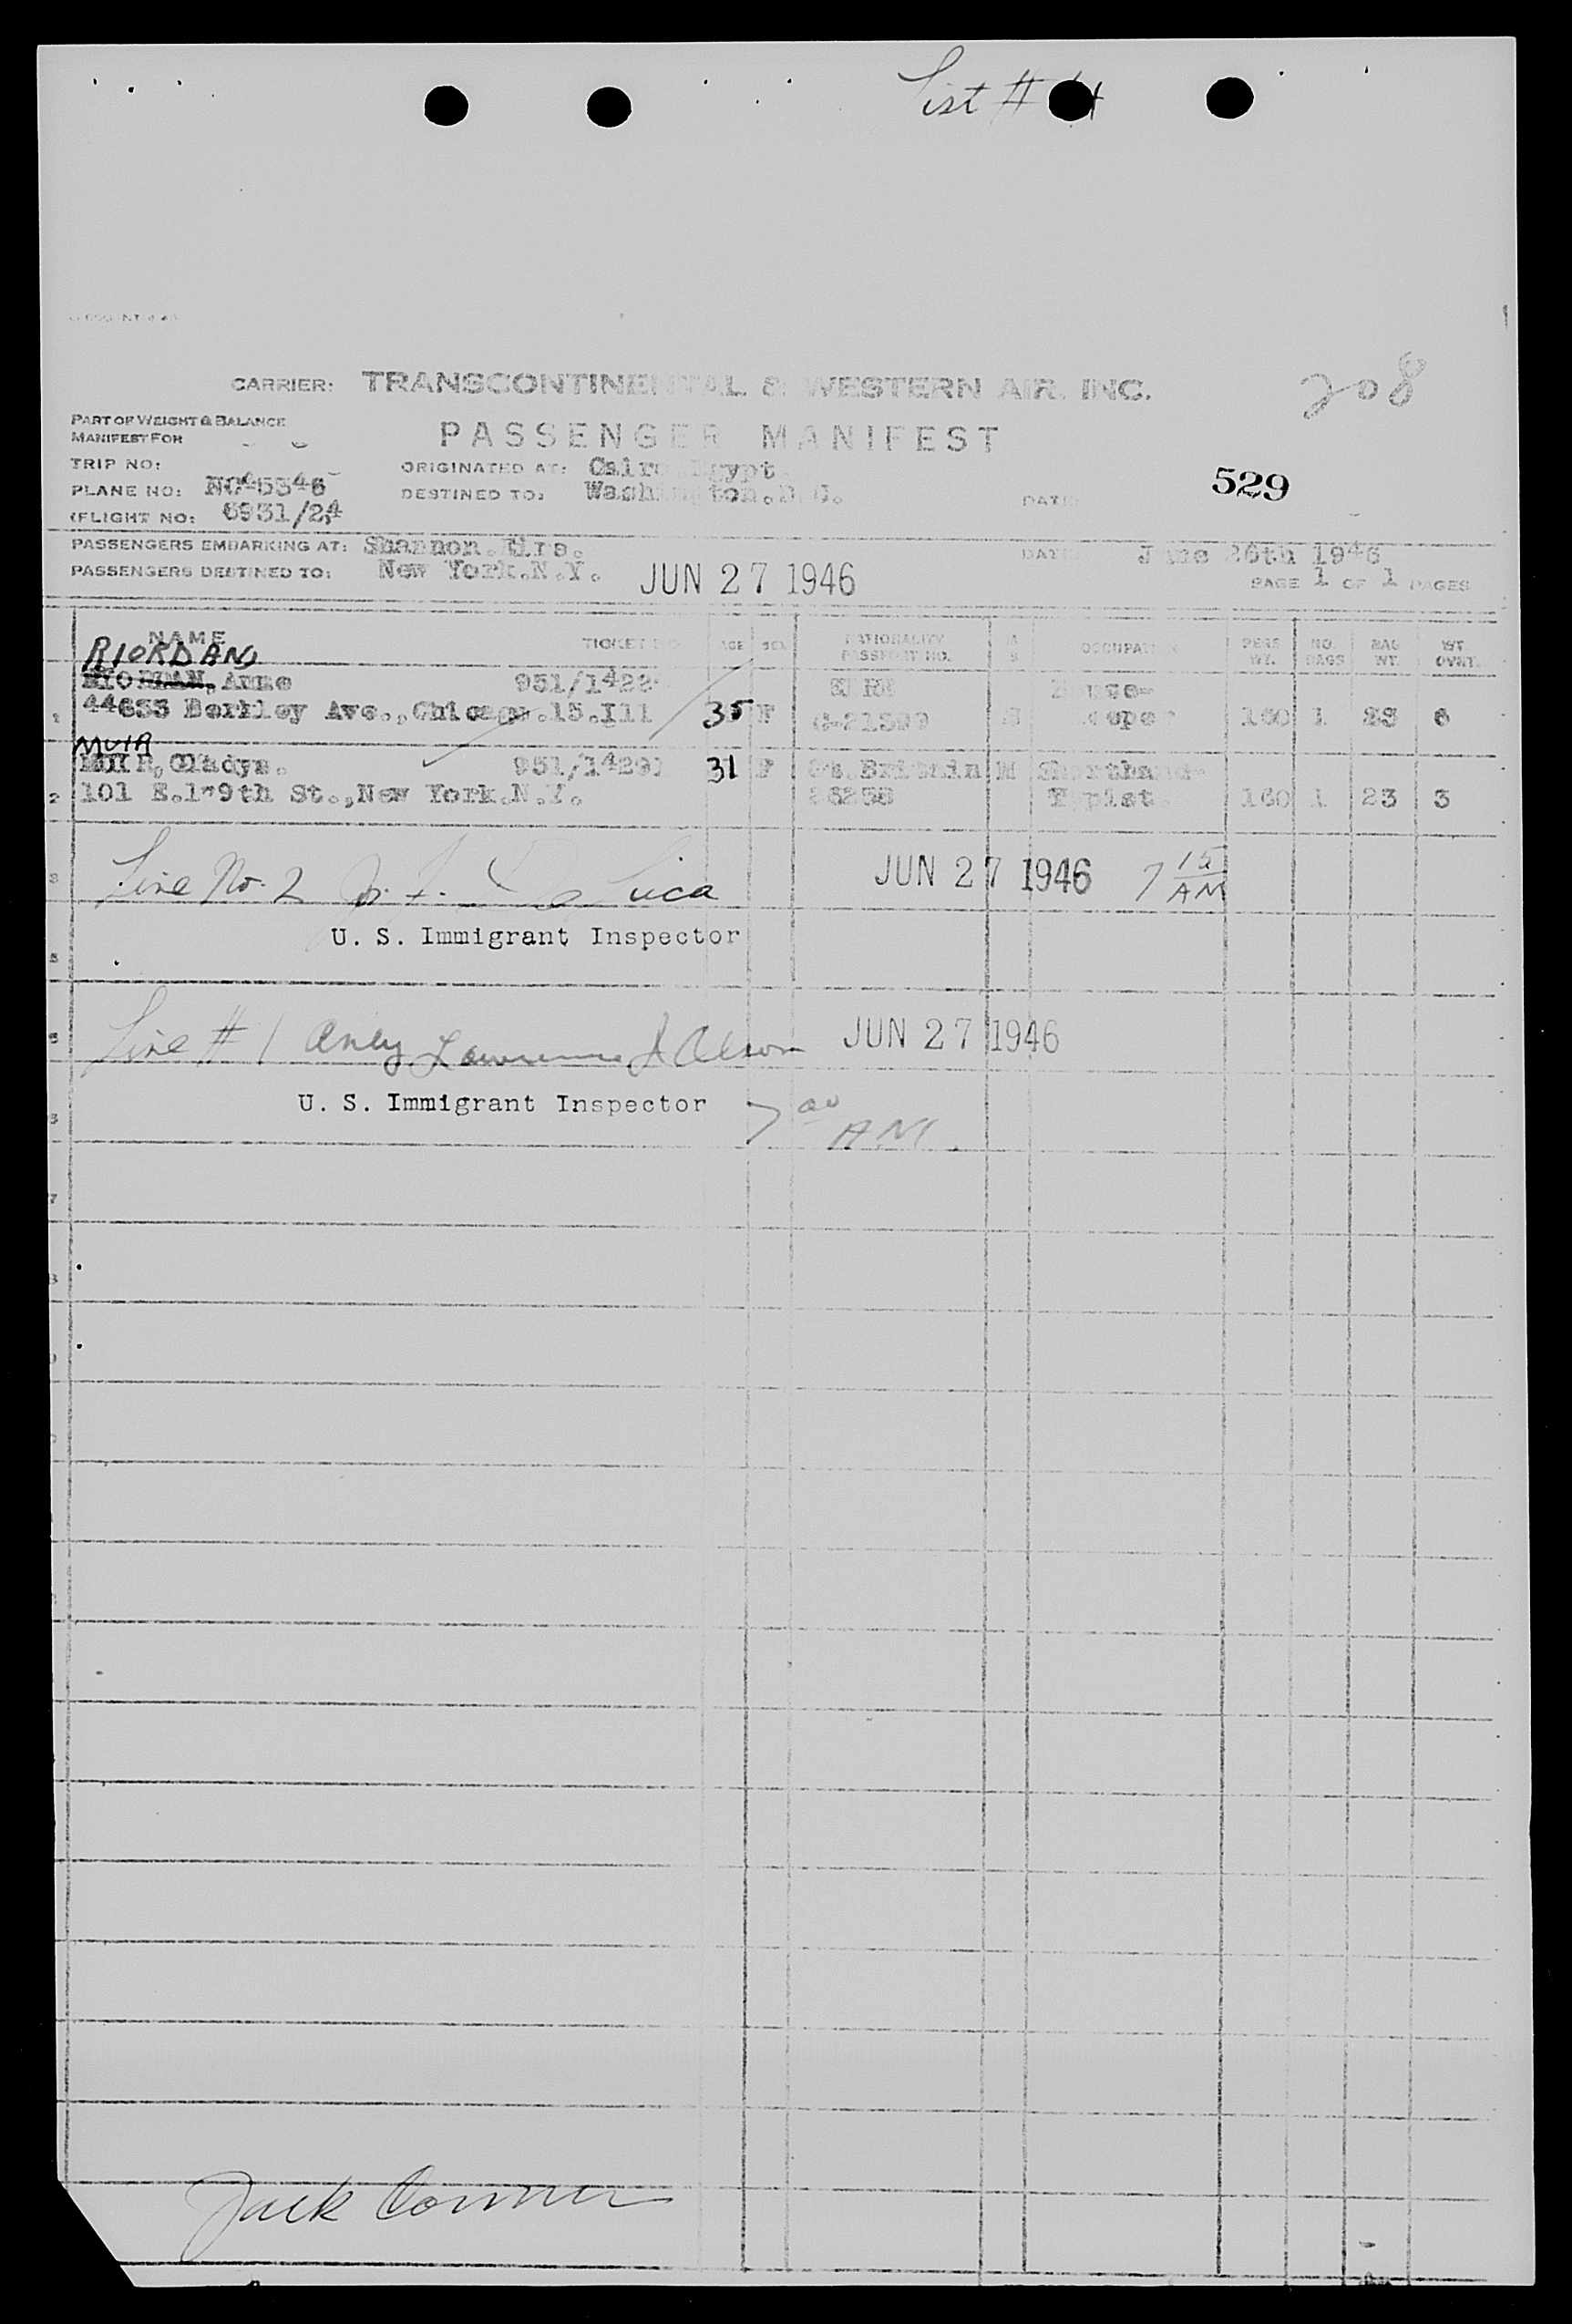 List #
CARRIER: TRANSCONTINENTAL & WESTERN AIR, INC.
208
PART OF WEIGHT & BALANCE
MANIFEST FOR
PASSENGER MANIFEST
TRIP NO:
ORIGINATED AT: Cairo Egypt
529
PLANE NO: NC 45346
DESTINED TO: Washington.D.C.
DATE
(FLIGHT NO: 6931/24
PASSENGERS EMBARKING AT: Shannon.Eire.
DATE June 26th 1946
PASSENGERS DESTINED TO: New York.N.Y.
JUN 27 1946
PAGE 1 OF 1 PAGES
NAME TICKET NO AGE SEX NATIONALITY PASSPORT NO. M S OCCUPATION PERS WT. NO. BAGS BAG WT. WT OVWT.
RIORDAN
RIORDAN, Anne 951/1422
44633 Berkley Ave.,Chicago.15.Ill 35 F 160 1 6
MUIR
MUIR, Gladys. 951/1429 31 F Gt.Britain M Shorthand-
2 101 E.179th St.,New York.N.Y. Typist. 160 1 23 3
Line No. 2 Luca
JUN 27 1946 7 15 AM
U. S. Immigrant Inspector
Line # 1 only Lawrence A Olson
JUN 27 1946
U. S. Immigrant Inspector
7 00 AM.
Jack Conner